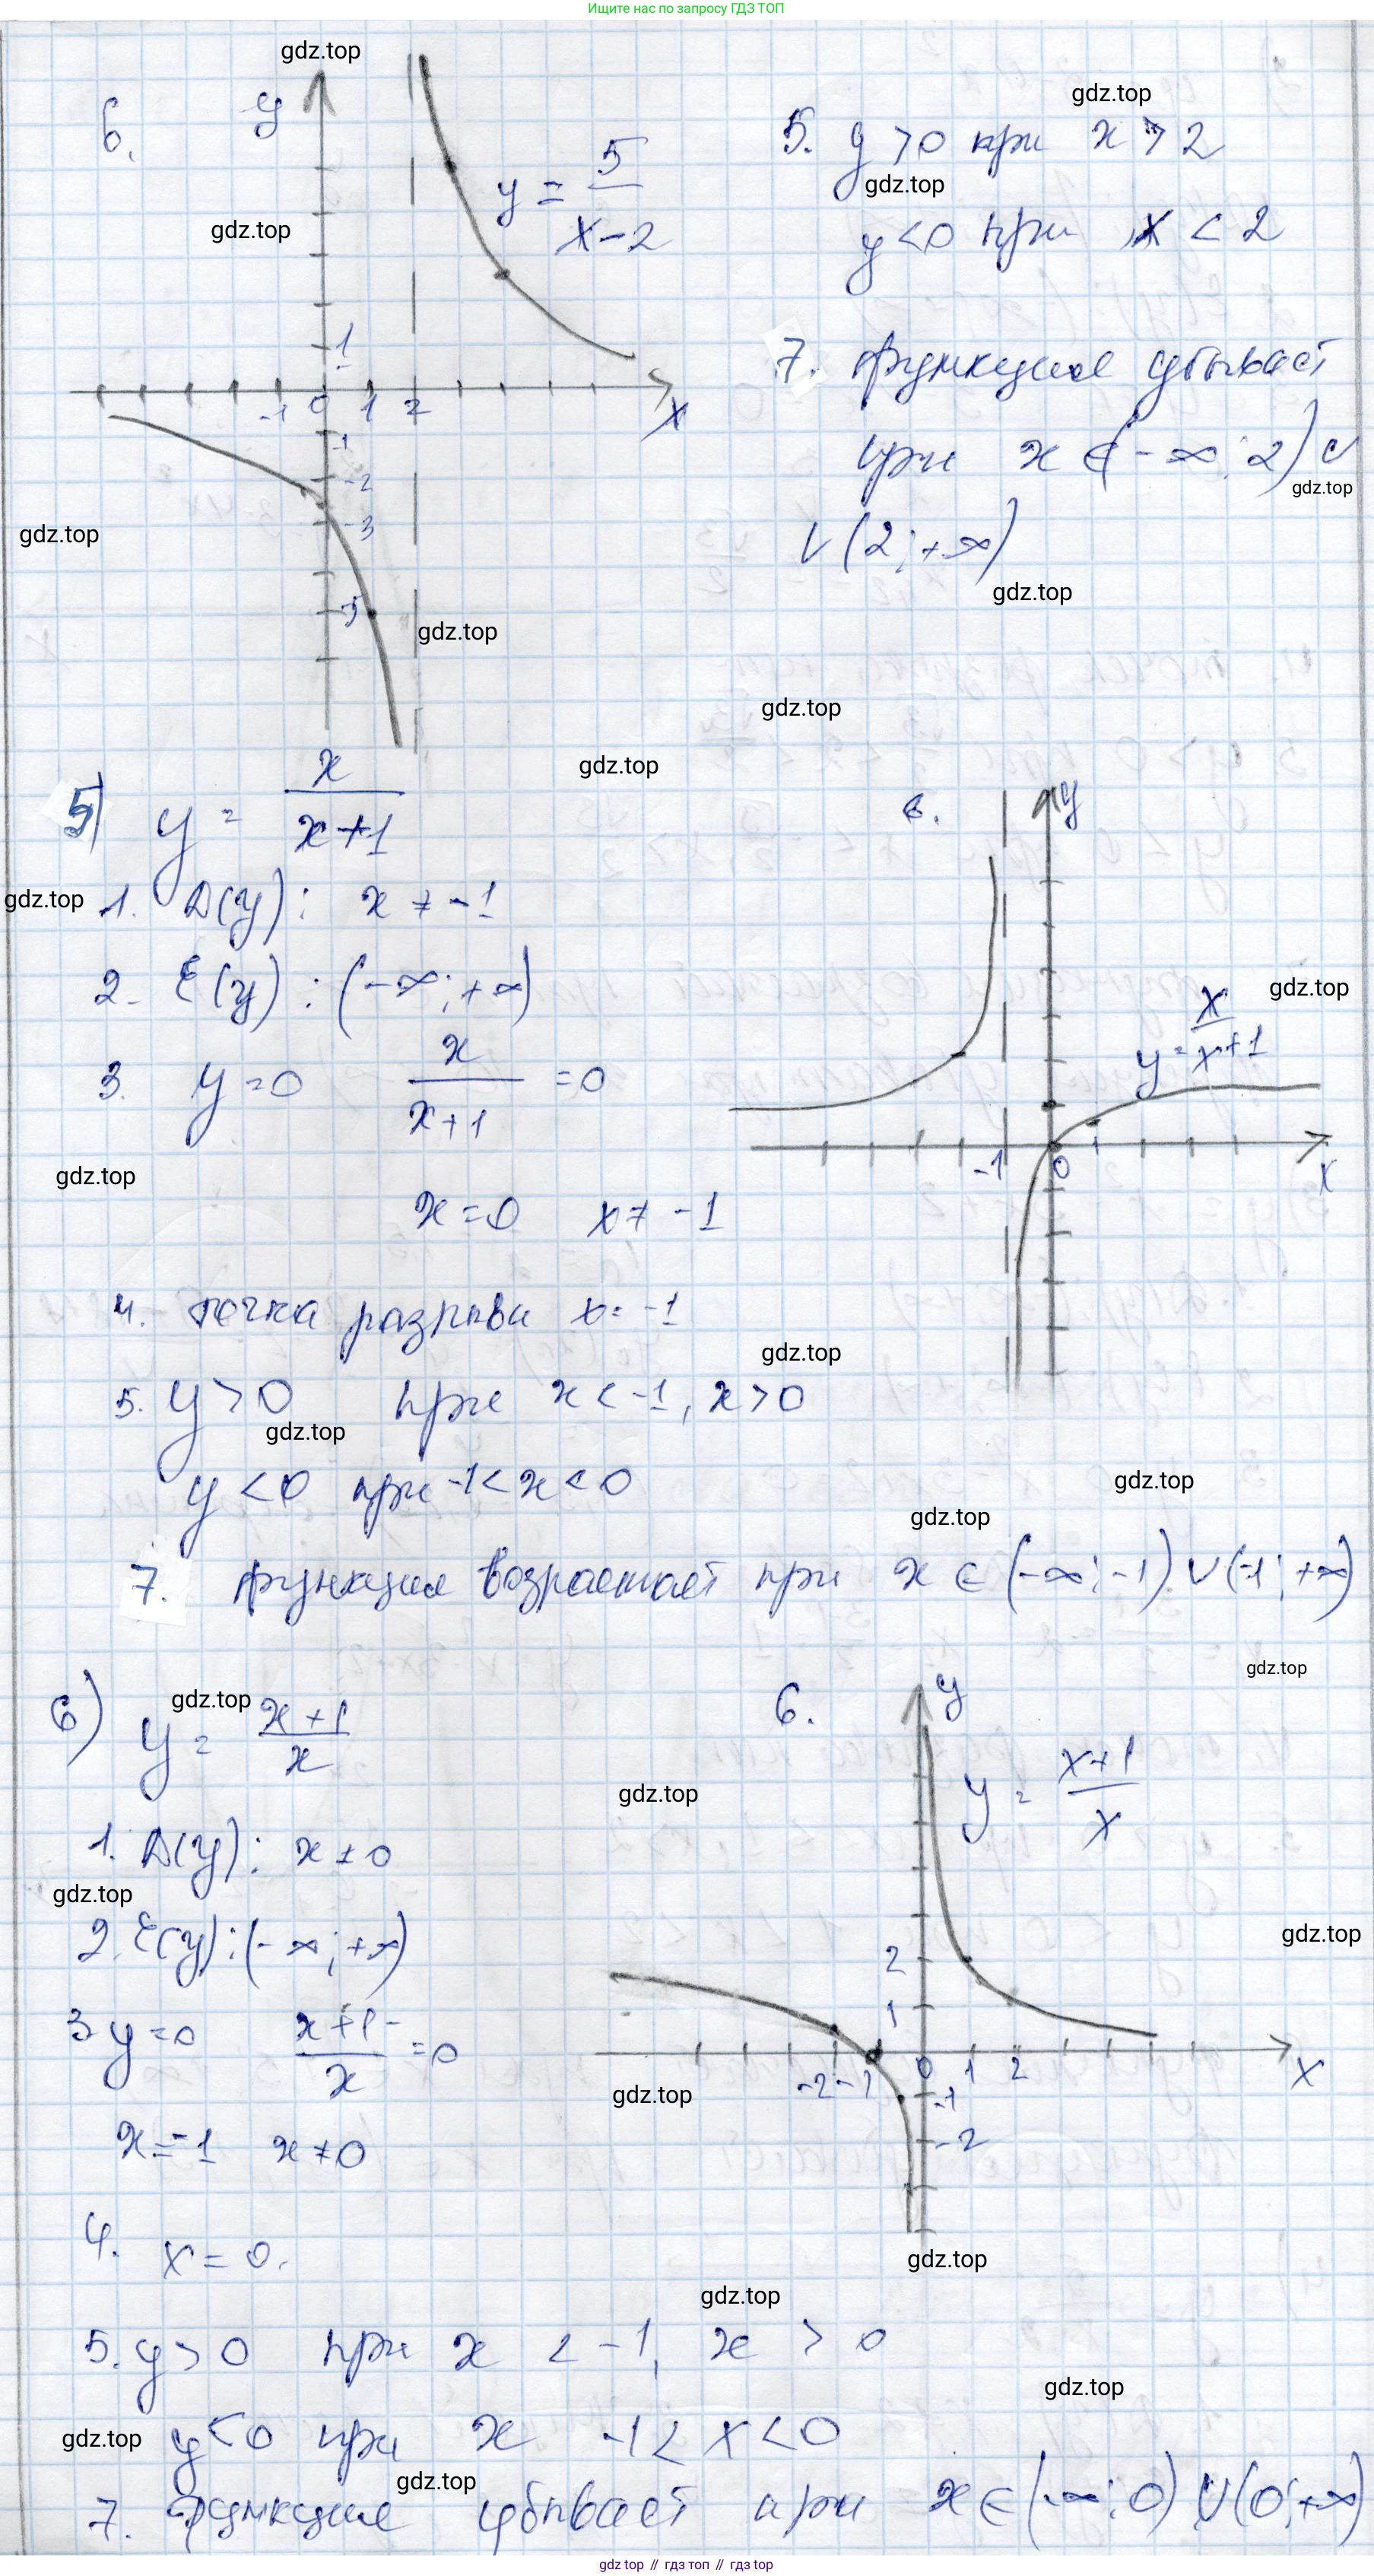 Ищите нас по запросу ГДЗ ТОП
gdz.top
6.
y
gdz.top
y = 5/(x-2)
gdz.top
5. y > 0 при x > 2
gdz.top
y < 0 при x < 2
1
-1 0 1 2 x
-1
-2
-3
-5
7. функция убывает
при x ∈ (-∞; 2) ∪
gdz.top
∪ (2; +∞)
gdz.top
gdz.top
gdz.top
gdz.top
gdz.top
5) y = x/(x+1)
gdz.top
1. D(y): x ≠ -1
2. E(y): (-∞; +∞)
3. y = 0 x/(x+1) = 0
gdz.top
x = 0 x ≠ -1
6.
y
gdz.top
y = x/(x+1)
-1 0 1 x
4. точка разрыва x = -1
gdz.top
5. y > 0 при x < -1, x > 0
gdz.top
y < 0 при -1 < x < 0
gdz.top
gdz.top
7. функция возрастает при x ∈ (-∞; -1) ∪ (-1; +∞)
gdz.top
6) y = (x+1)/x
gdz.top
1. D(y): x ≠ 0
gdz.top
2. E(y): (-∞; +∞)
3 y = 0 (x+1)/x = 0
x = -1 x ≠ 0
6.
y
gdz.top
y = (x+1)/x
gdz.top
2
1
-2 -1 0 1 2 x
gdz.top
-1
-2
4. x = 0.
gdz.top
gdz.top
5. y > 0 при x < -1, x > 0
gdz.top
gdz.top
y < 0 при x -1 < x < 0
gdz.top
7. функция убывает при x ∈ (-∞; 0) ∪ (0; +∞)
gdz top // гдз топ // гдз top